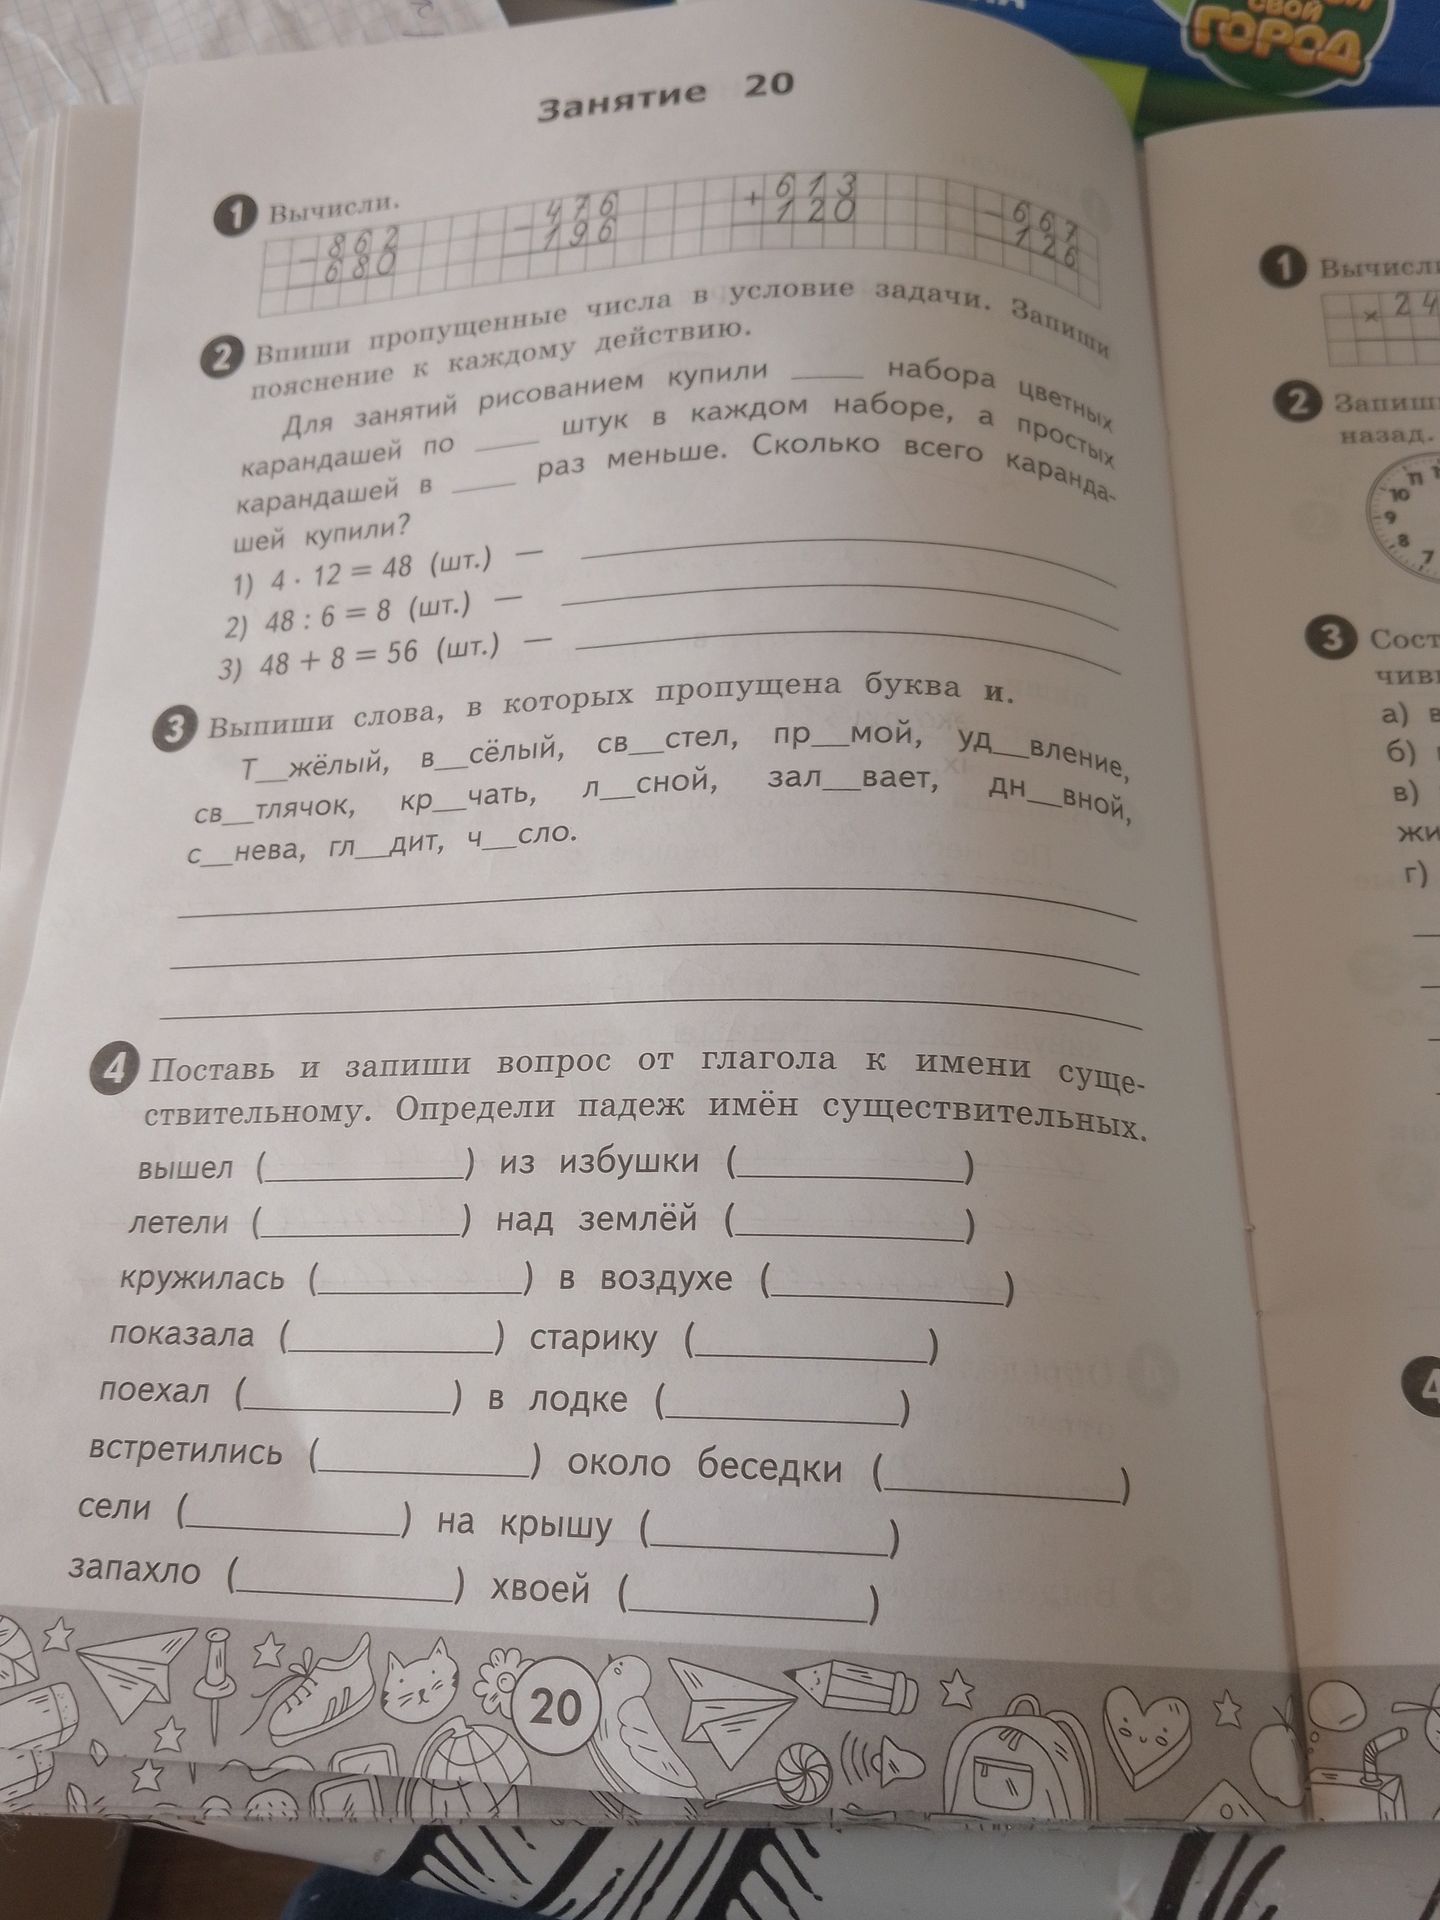 СВОЙ
ГОРОД
Занятие 20
1 Вычисли.
− 862
680
− 476
196
+ 613
120
− 667
126
2 Впиши пропущенные числа в условие задачи. Запиши
пояснение к каждому действию.
Для занятий рисованием купили ____ набора цветных
карандашей по ____ штук в каждом наборе, а простых
карандашей в ____ раз меньше. Сколько всего каранда-
шей купили?
1) 4 · 12 = 48 (шт.) — ____
2) 48 : 6 = 8 (шт.) — ____
3) 48 + 8 = 56 (шт.) — ____
3 Выпиши слова, в которых пропущена буква и.
Т__жёлый, в__сёлый, св__стел, пр__мой, уд__вление,
св__тлячок, кр__чать, л__сной, зал__вает, дн__вной,
с__нева, гл__дит, ч__сло.
4 Поставь и запиши вопрос от глагола к имени суще-
ствительному. Определи падеж имён существительных.
вышел (____) из избушки (____)
летели (____) над землёй (____)
кружилась (____) в воздухе (____)
показала (____) старику (____)
поехал (____) в лодке (____)
встретились (____) около беседки (____)
сели (____) на крышу (____)
запахло (____) хвоей (____)
20
1 Вычисли
× 24
2 Запиши
назад.
11
10
9
8
7
3 Сост
чив
а) в
б)
в)
жи
г)
4